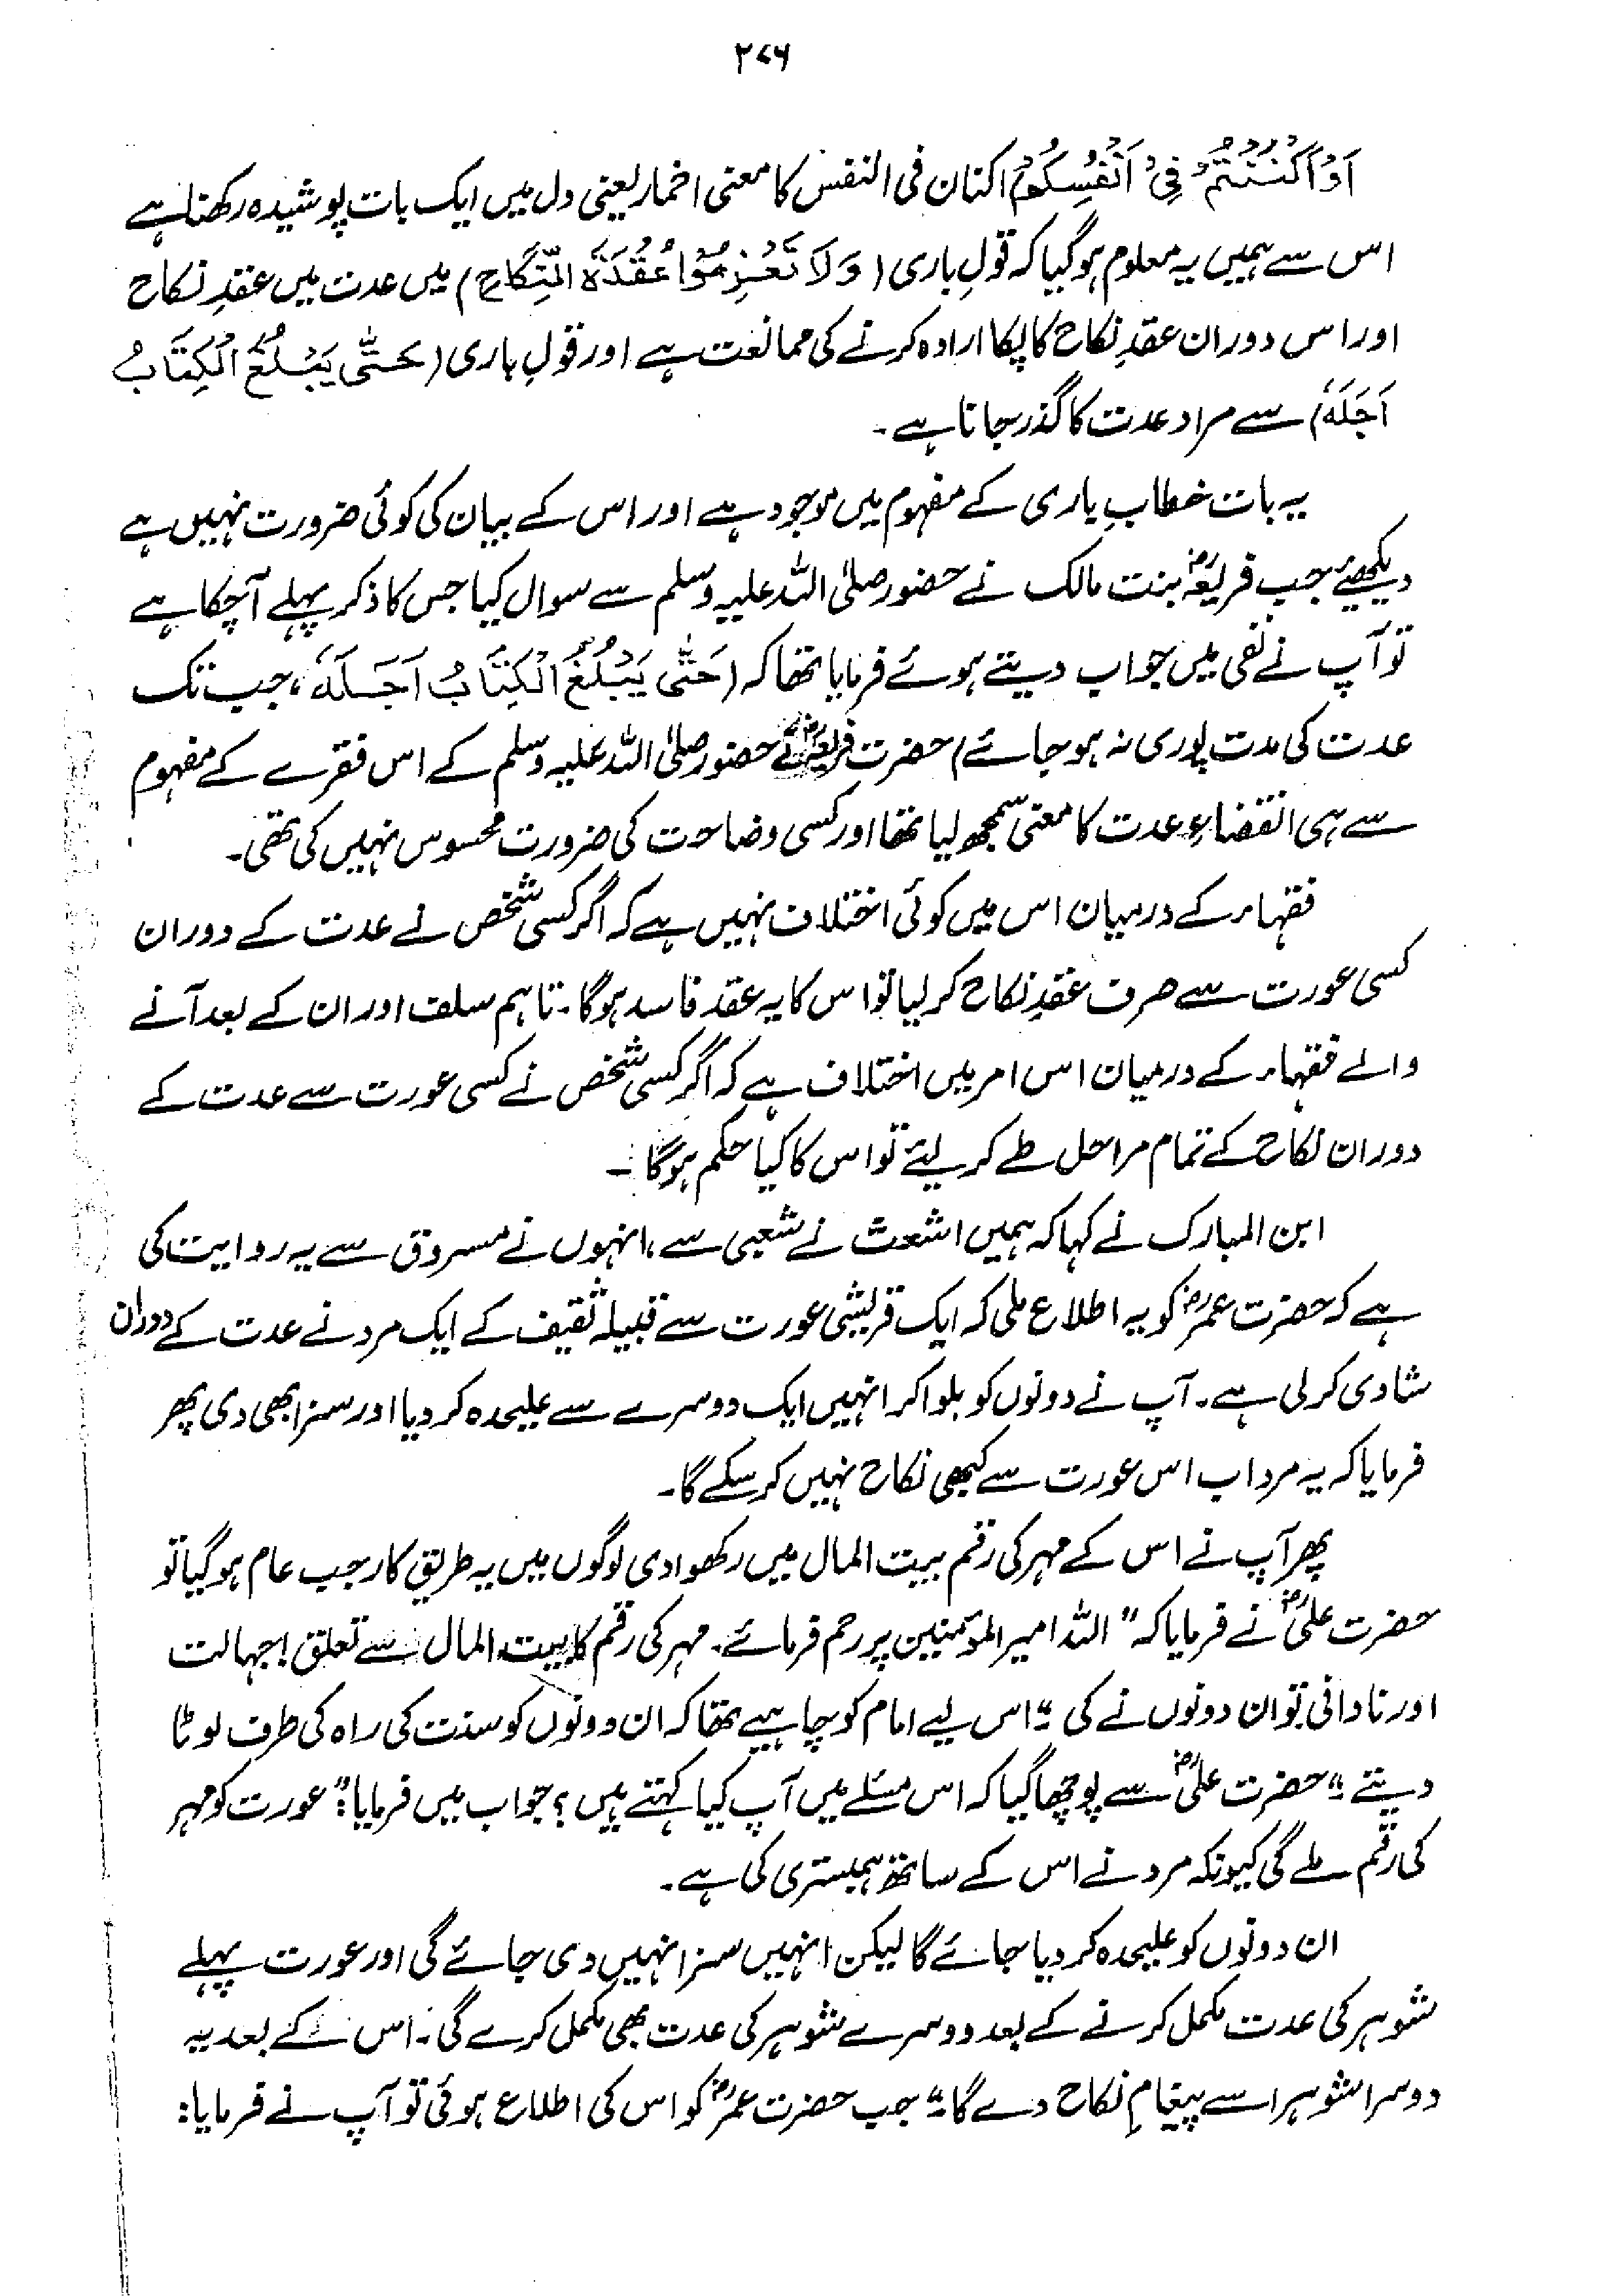 ۲۷۶
اَوْ اَكْنَنْتُمْ فِىْ اَنْفُسِكُمْ) اکنان فی النفس کا معنی اضمار یعنی دل میں ایک بات پوشیدہ رکھنا ہے
اس سے ہمیں یہ معلوم ہو گیا کہ قولِ باری (وَلَا تَعْزِمُوْا عُقْدَةَ النِّكَاحِ) میں عدت میں عقدِ نکاح
اور اس دوران عقدِ نکاح کا پکا ارادہ کرنے کی ممانعت ہے اور قولِ باری (حَتّٰى يَبْلُغَ الْكِتَابُ
اَجَلَهٗ) سے مراد عدت کا گذر جانا ہے۔
یہ بات خطابِ باری کے مفہوم میں موجود ہے اور اس کے بیان کی کوئی ضرورت نہیں ہے
دیکھیئے جب فریعہؓ بنت مالک نے حضور صلی اللہ علیہ وسلم سے سوال کیا جس کا ذکر پہلے آچکا ہے
تو آپ نے نفی میں جواب دیتے ہوئے فرمایا تھا کہ (حَتّٰى يَبْلُغَ الْكِتَابُ اَجَلَهٗ، جب تک
عدت کی مدت پوری نہ ہو جائے) حضرت فریعہؓ نے حضور صلی اللہ علیہ وسلم کے اس فقرے کے مفہوم
سے ہی انقضاءِ عدت کا معنی سمجھ لیا تھا اور کسی وضاحت کی ضرورت محسوس نہیں کی تھی۔
فقہاء کے درمیان اس میں کوئی اختلاف نہیں ہے کہ اگر کسی شخص نے عدت کے دوران
کسی عورت سے صرف عقدِ نکاح کر لیا تو اس کا یہ عقد فاسد ہوگا۔ تاہم سلف اور ان کے بعد آنے
والے فقہاء کے درمیان اس امر میں اختلاف ہے کہ اگر کسی شخص نے کسی عورت سے عدت کے
دوران نکاح کے تمام مراحل طے کر لیئے تو اس کا کیا حکم ہوگا۔
ابن المبارک نے کہا کہ ہمیں اشعث نے شعبی سے، انہوں نے مسروق سے یہ روایت کی
ہے کہ حضرت عمرؓ کو یہ اطلاع ملی کہ ایک قریشی عورت سے قبیلہ ثقیف کے ایک مرد نے عدت کے دوران
شادی کر لی ہے۔ آپ نے دونوں کو بلوا کر انہیں ایک دوسرے سے علیحدہ کر دیا اور سزا بھی دی پھر
فرمایا کہ یہ مرد اب اس عورت سے کبھی نکاح نہیں کر سکے گا۔
پھر آپ نے اس کے مہر کی رقم بیت المال میں رکھوا دی لوگوں میں یہ طریق کار جب عام ہو گیا تو
حضرت علیؓ نے فرمایا کہ "اللہ امیر المؤمنین پر رحم فرمائے۔ مہر کی رقم کا بیت المال سے تعلق! جہالت
اور نادانی تو ان دونوں نے کی" اس لیے امام کو چاہیے تھا کہ ان دونوں کو سنت کی راہ کی طرف لوٹا
دیتے" حضرت علیؓ سے پوچھا گیا کہ اس مسئلے میں آپ کیا کہتے ہیں؟ جواب میں فرمایا: "عورت کو مہر
کی رقم ملے گی کیونکہ مرد نے اس کے ساتھ ہمبستری کی ہے۔
ان دونوں کو علیحدہ کر دیا جائے گا لیکن انہیں سزا نہیں دی جائے گی اور عورت پہلے
شوہر کی عدت مکمل کرنے کے بعد دوسرے شوہر کی عدت بھی مکمل کرے گی۔ اس کے بعد یہ
دوسرا شوہر اسے پیغامِ نکاح دے گا" جب حضرت عمرؓ کو اس کی اطلاع ہوئی تو آپ نے فرمایا: